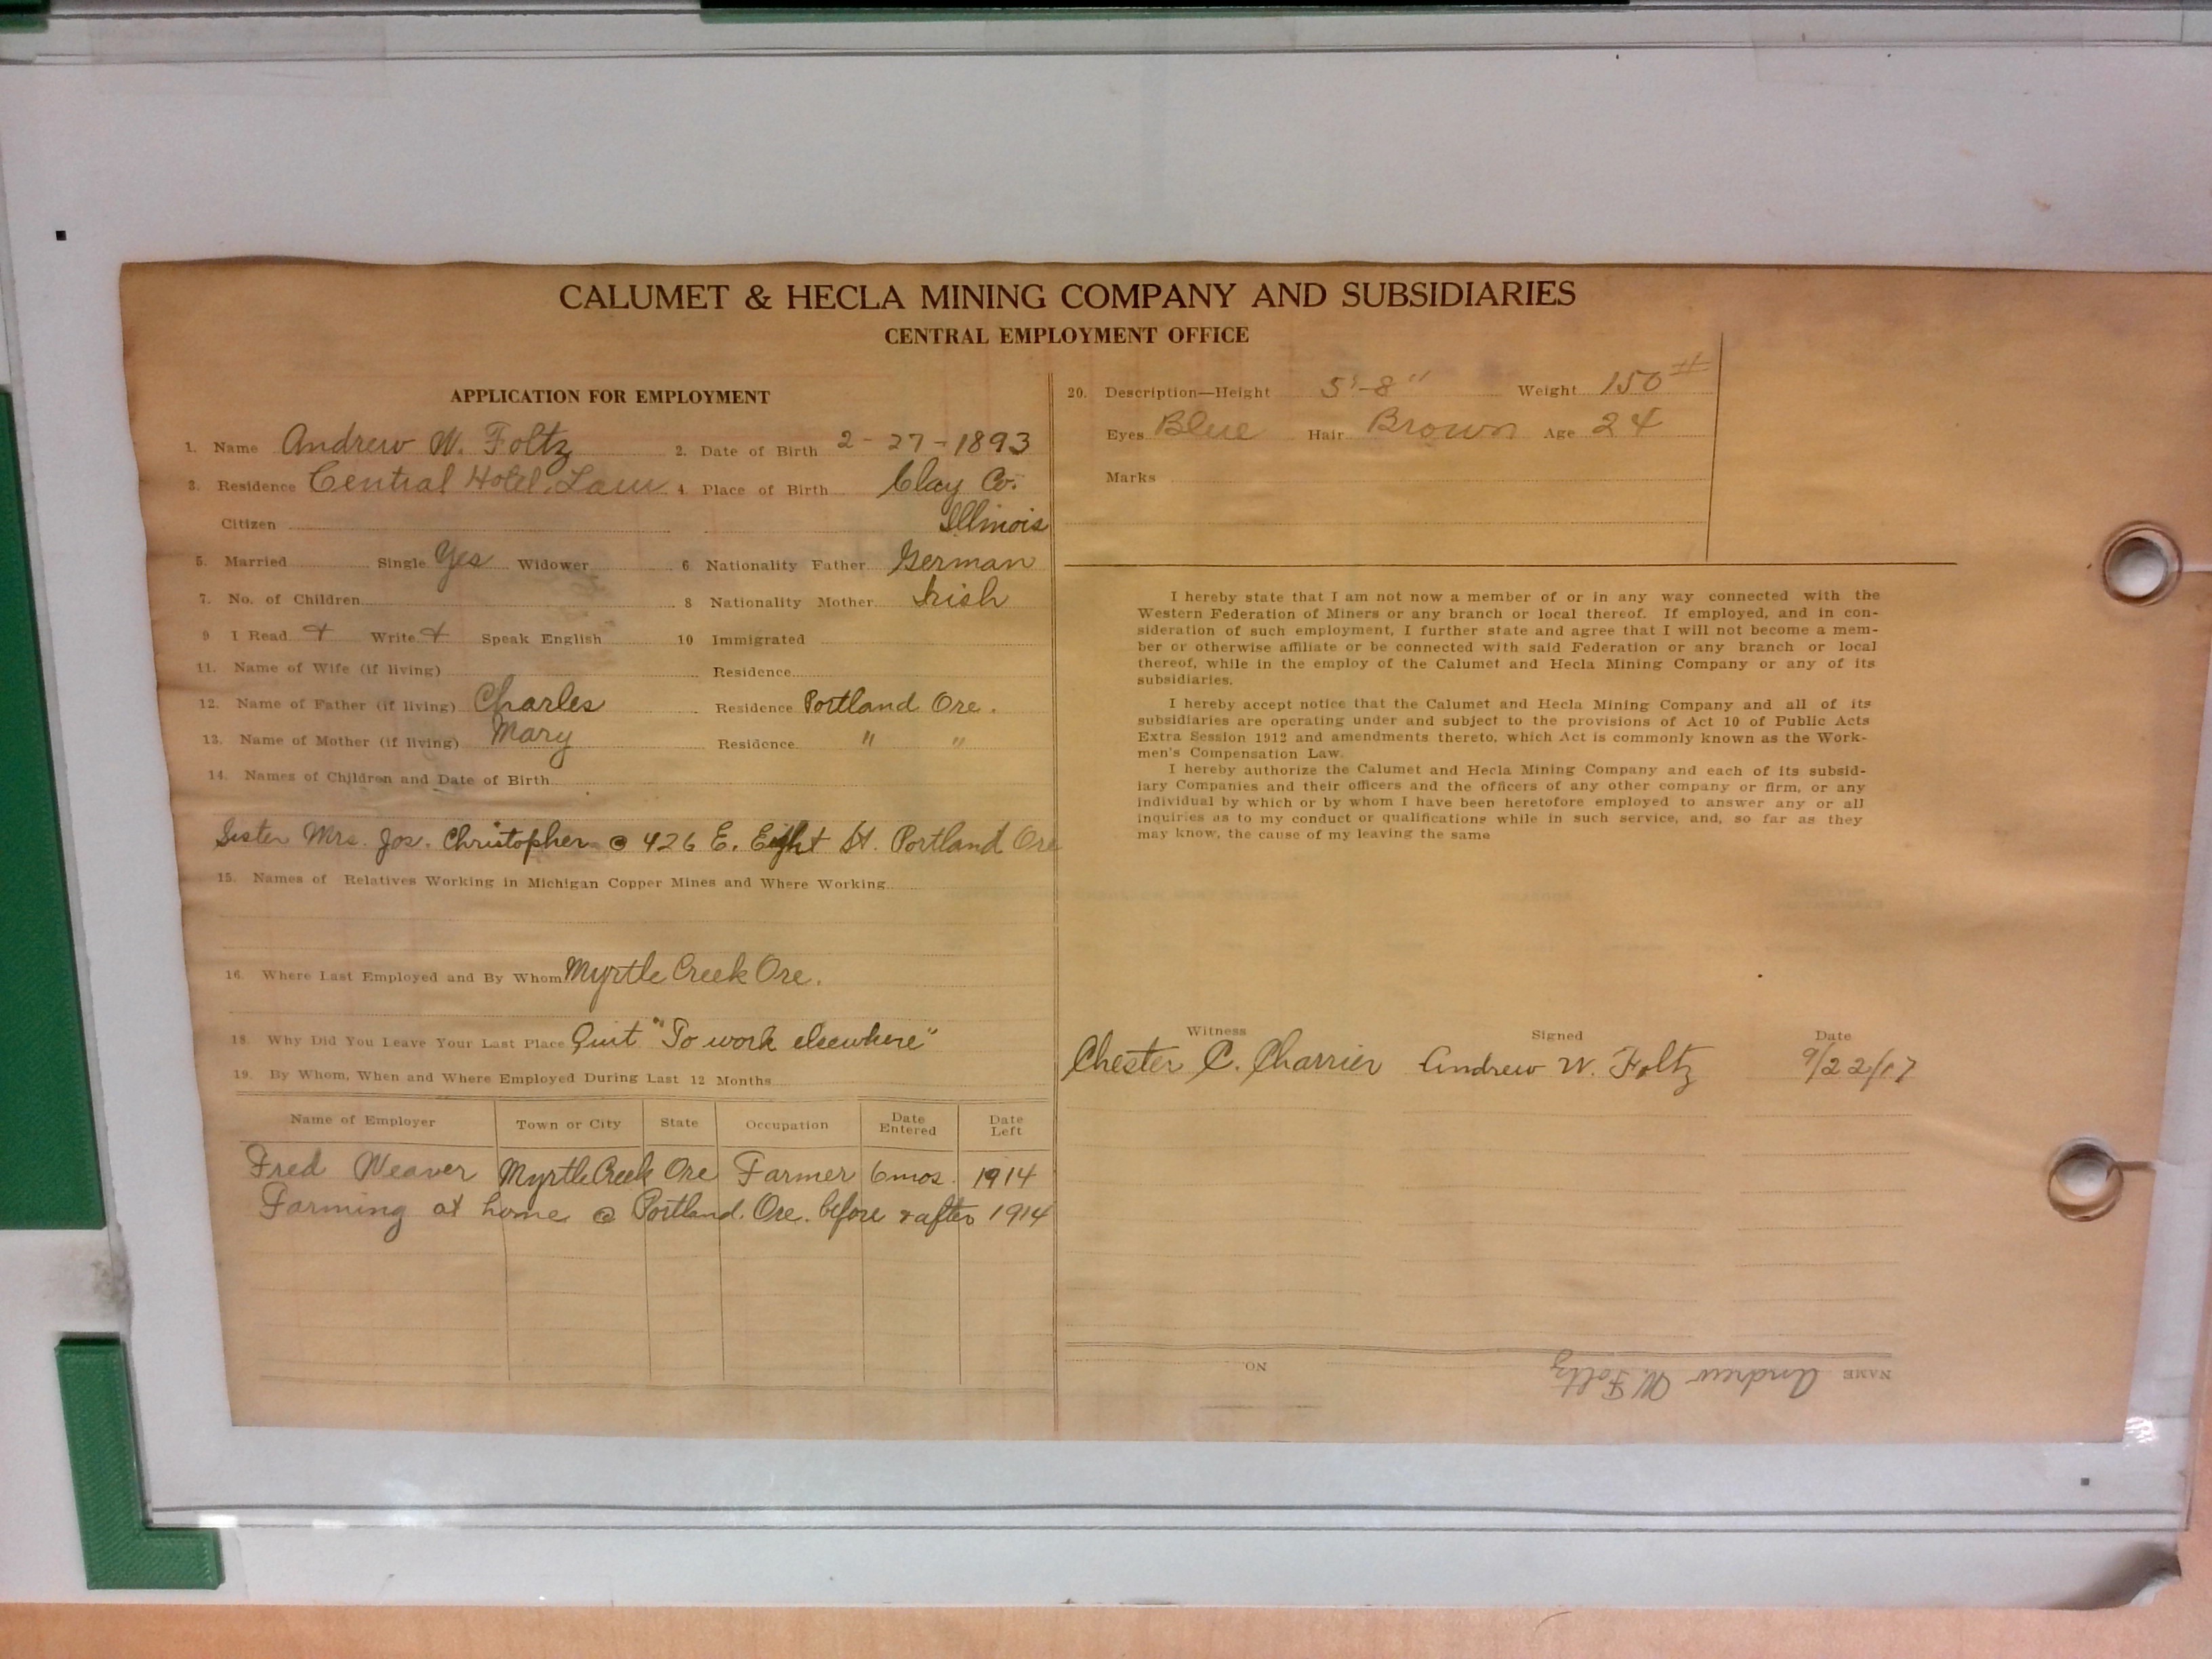 CALUMET & HECLA MINING COMPANY AND SUBSIDIARIES
CENTRAL EMPLOYMENT OFFICE
APPLICATION FOR EMPLOYMENT
1. Name Andrew W. Foltz 2. Date of Birth 2-27-1893
3. Residence Central Hotel, Laur 4 Place of Birth Clay Co.
Citizen Illinois
5. Married Single Yes Widower 6 Nationality Father German
7. No. of Children 8 Nationality Mother Irish
9 I Read + Write + Speak English 10 Immigrated
11. Name of Wife (if living) Residence
12. Name of Father (if living) Charles Residence Portland Ore.
13. Name of Mother (if living) Mary Residence " "
14. Names of Children and Date of Birth
Sister Mrs. Jos. Christopher @ 426 E. Eight St. Portland Ore
15. Names of Relatives Working in Michigan Copper Mines and Where Working
16. Where Last Employed and By Whom Myrtle Creek Ore.
18. Why Did You Leave Your Last Place Quit "To work elsewhere"
19. By Whom, When and Where Employed During Last 12 Months
Name of Employer Town or City State Occupation Date Entered Date Left
Fred Weaver Myrtle Creek Ore Farmer 6 mos. 1914
Farming at home @ Portland. Ore. before & after 1914
20. Description—Height 5'-8" Weight 150#
Eyes Blue Hair Brown Age 24
Marks
I hereby state that I am not now a member of or in any way connected with the
Western Federation of Miners or any branch or local thereof. If employed, and in con-
sideration of such employment, I further state and agree that I will not become a mem-
ber or otherwise affiliate or be connected with said Federation or any branch or local
thereof, while in the employ of the Calumet and Hecla Mining Company or any of its
subsidiaries.
I hereby accept notice that the Calumet and Hecla Mining Company and all of its
subsidiaries are operating under and subject to the provisions of Act 10 of Public Acts
Extra Session 1912 and amendments thereto, which Act is commonly known as the Work-
men's Compensation Law.
I hereby authorize the Calumet and Hecla Mining Company and each of its subsid-
iary Companies and their officers and the officers of any other company or firm, or any
individual by which or by whom I have been heretofore employed to answer any or all
inquiries as to my conduct or qualifications while in such service, and, so far as they
may know, the cause of my leaving the same
Witness Signed Date
Chester C. Charrier Andrew W. Foltz 9/22/17
NAME Andrew W. Foltz NO.